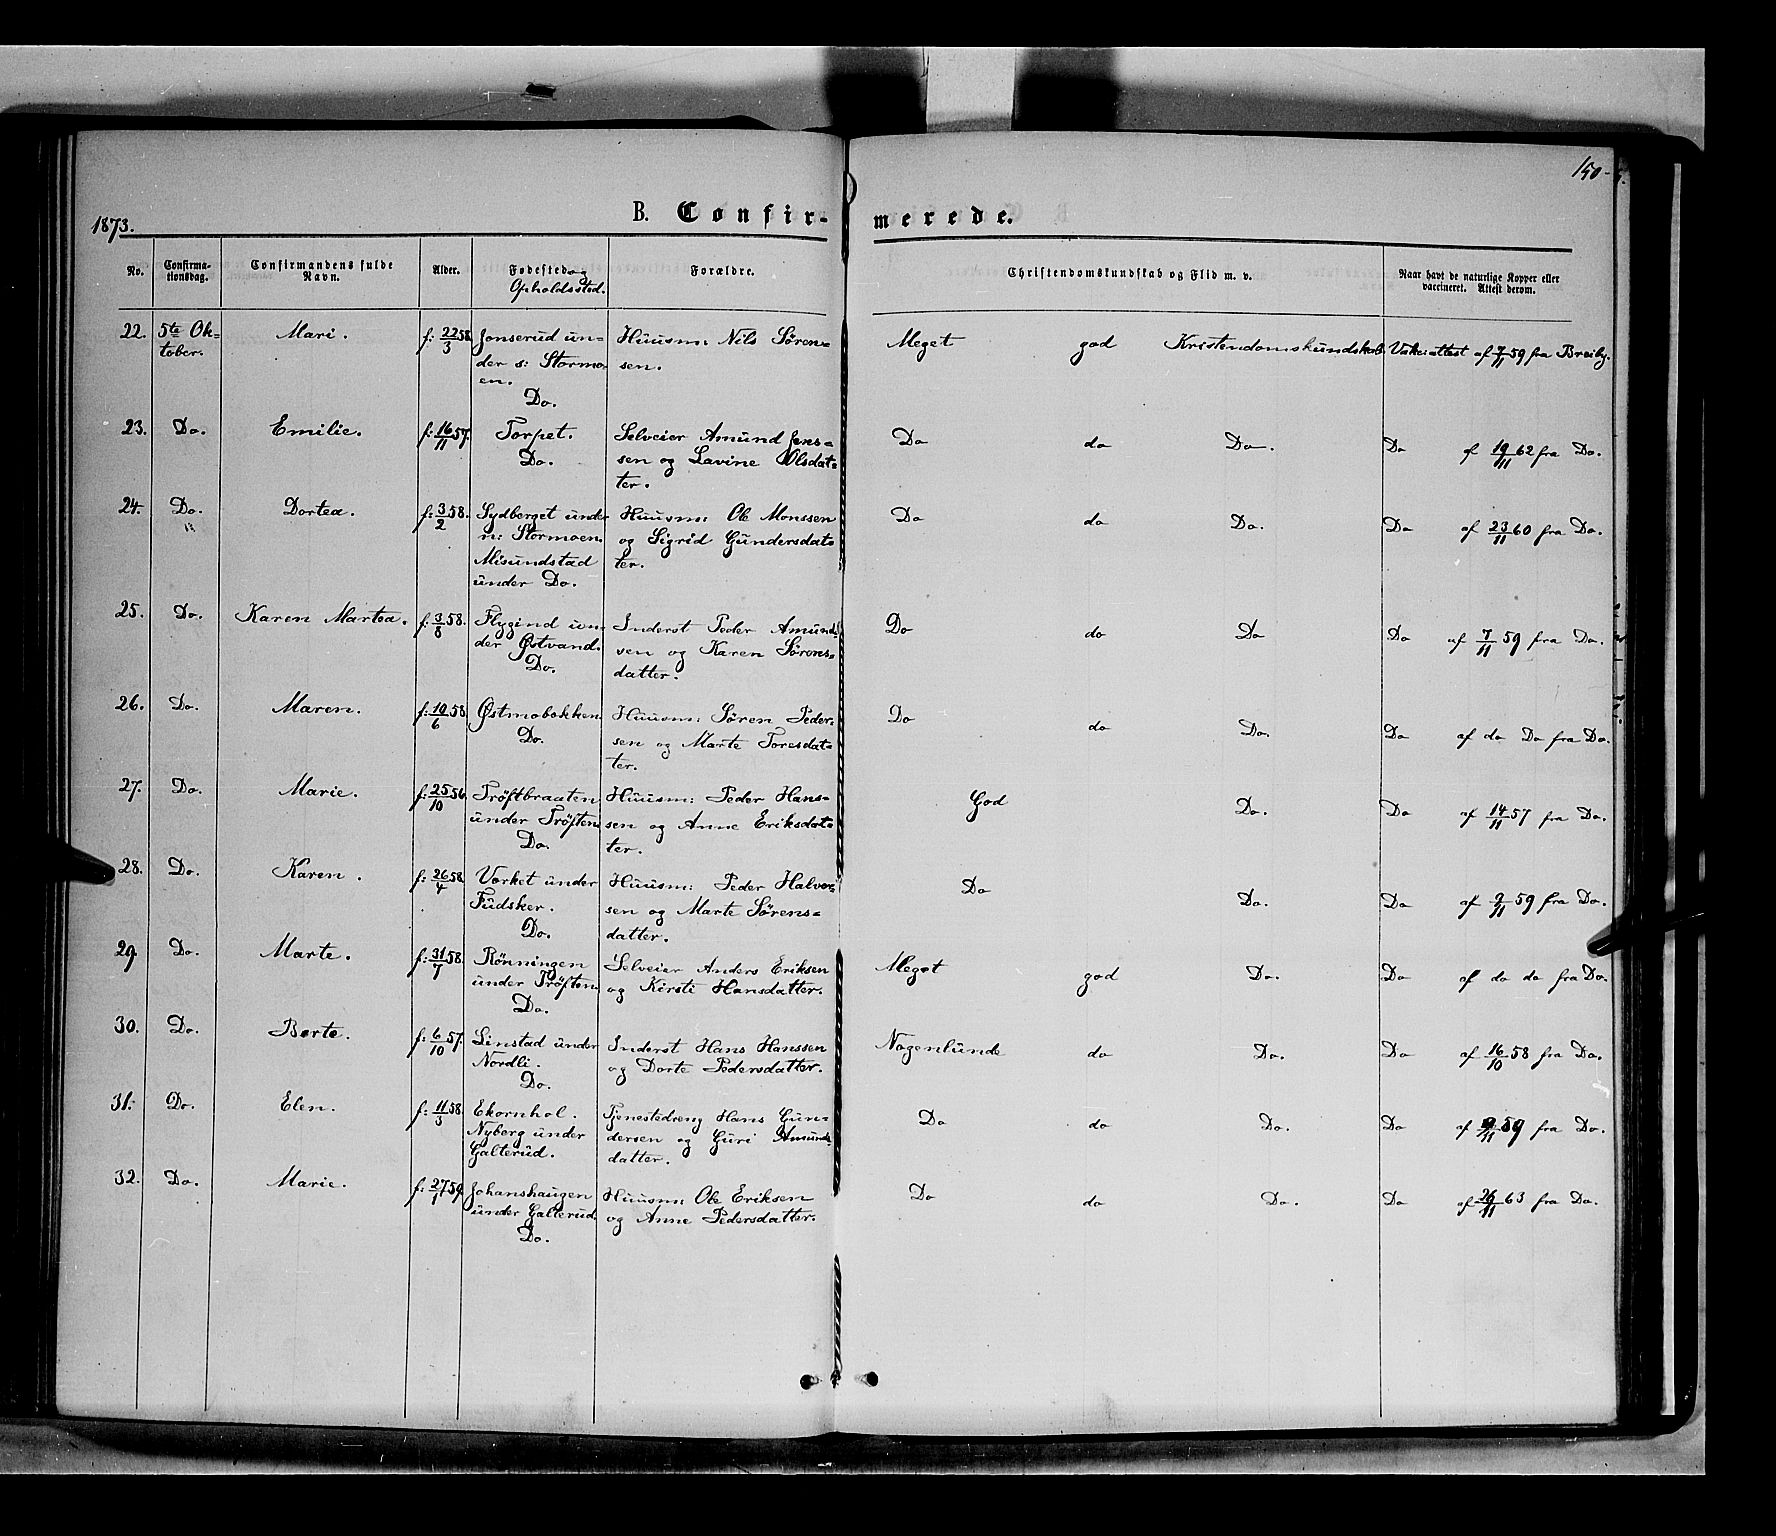 150-
1873.
B. Confir- merede.
No. Confirma-tionsdag. Confirmandens fulde Navn. Alder. Fødested og Opholdssted. Forældre. Christendomskundskab og Flid m. v. Naar havt de naturlige Kopper eller vaccineret. Attest derom.
22. 5te Ok- Mari. f: 22/3 58 Jonserud un- Huusm: Nils Søren= Meget god Kristendomskundskab af 7/11 59 fra Breiby.
tober. der s: Stormo- sen.
en.
Do.
23. Do. Emilie. f: 16/11 57. Torpet. Selveier Amund Jens= Do do Do. Do af 19/11 62 fra Do.
Do. sen og Lavine Olsdat=
ter.
24. Do. Dortea. f: 3/2 58. Sydberget under Huusm: Ole Monssen Do do Do. Do af 23/11 60 fra Do.
n: Stormoen. og Sigrid Gundersdat=
Misundstad ter.
under Do.
25. Do. Karen Martea. f: 3/8 58. Flygind un- Inderst Peder Amund- Do do Do Do af 7/11 59 fra Do.
der Østvand. sen og Karen Sørens=
Do. datter.
26. Do. Maren. f: 10/6 58 Østmobakken. Huusm: Søren Peder- Do do Do. Do af do Do fra Do.
Do. sen og Marte Toresdat=
ter.
27. Do. Marie. f: 25/10 56. Trøftbraaten Huusm: Peder Hans= God Do. Do af 14/11 57 fra Do.
under Trøften. sen og Anne Eriksdat=
Do. ter.
28. Do. Karen. f: 26/4 58 Værket under Huusm: Peder Halvor= Do Do. Do af 9/11 59 fra Do.
Fudsker. sen og Marte Sørens=
Do. datter.
29. Do. Marte. f: 31/7 58. Rønningen Selveier Anders Eriksen Meget god Do. Do af do do fra Do.
under Trøften. og Kirsti Hansdatter.
Do.
30. Do. Berte. f: 6/10 57. Linstad under Inderst Hans Hanssen Nogenlunde do Do. Do af 16/10 58 fra Do.
Nordli. og Dorte Pedersdatter.
Do.
31. Do. Elen. f: 11/3 58 Ekornhol. Tjenestedreng Hans Gun= Do do Do. Do af 9/11 59 fra Do.
Nyberg under dersen og Guri Amunds=
Galterud. datter.
32. Do. Marie. f: 27/1 59. Johanshaugen Huusm: Ole Eriksen Do do Do. Do af 26/11 63 fra Do.
under Galterud. og Anne Pedersdatter.
Do.